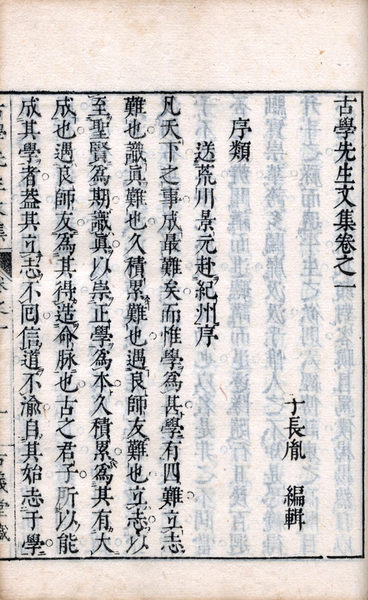 古學先生文集卷之一
子長胤 編輯
序類
送荒川景元赴紀州序
凡天下之事成最難矣而惟學爲甚學有四難立志
難也識眞難也久積累難也遇良師友難也立志以
至聖賢爲期識眞以崇正學爲本久積累爲其有大
成也遇良師友爲其得造命脉也古之君子所以能
成其學者葢其立志不回信道不渝自其始志于學